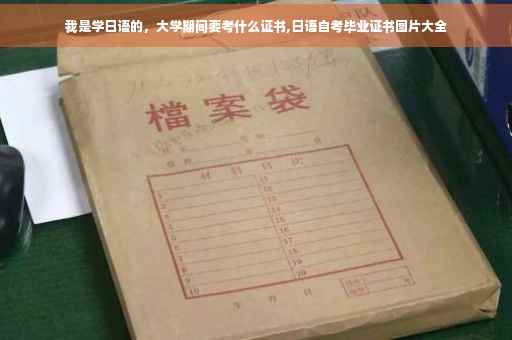 我是学日语的，大学期间要考什么证书,日语自考毕业证书图片大全
檔案袋
材料目次
1 11
2 12
3 13
4 14
5 15
6 16
7 17
8 18
9 19
10 20
年 月 日